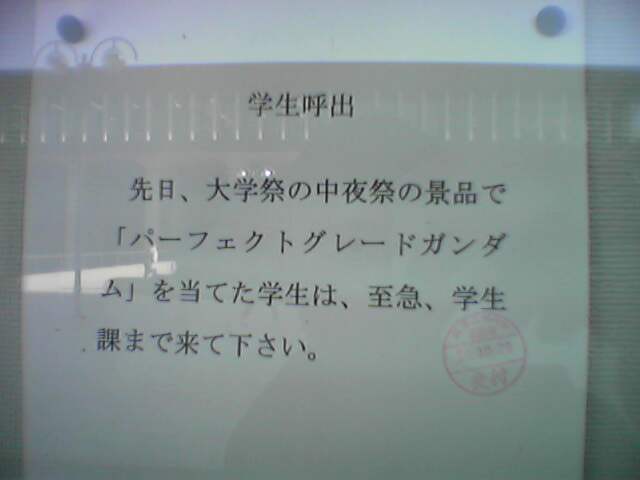 学生呼出
先日、大学祭の中夜祭の景品で
「パーフェクトグレードガンダ
ム」を当てた学生は、至急、学生
課まで来て下さい。